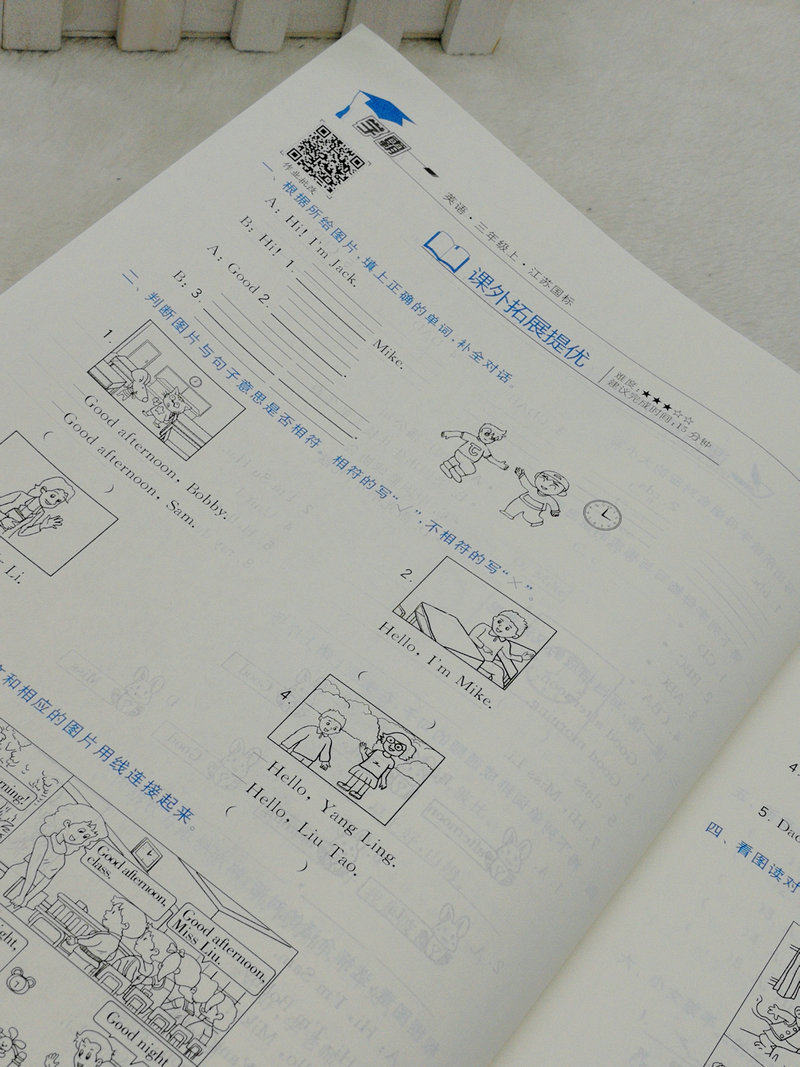 学霸
作业批改
英语·三年级上·江苏国标
课外拓展提优
难度:★★★☆☆
建议完成时间:15分钟
一、根据所给图片,填上正确的单词,补全对话。
A: Hi! I'm Jack.
B: Hi! 1.
Mike.
A: Good 2.
B: 3.
二、判断图片与句子意思是否相符。相符的写“√”,不相符的写“×”。
1.
Good afternoon, Bobby.
Good afternoon, Sam.
( )
2.
Hello, I'm Mike.
( )
Li.
4.
Hello, Yang Ling.
Hello, Liu Tao.
( )
和相应的图片用线连接起来。
Good afternoon, class.
Good afternoon, Miss Liu.
Good night
4.
5. Dad
四、看图读对